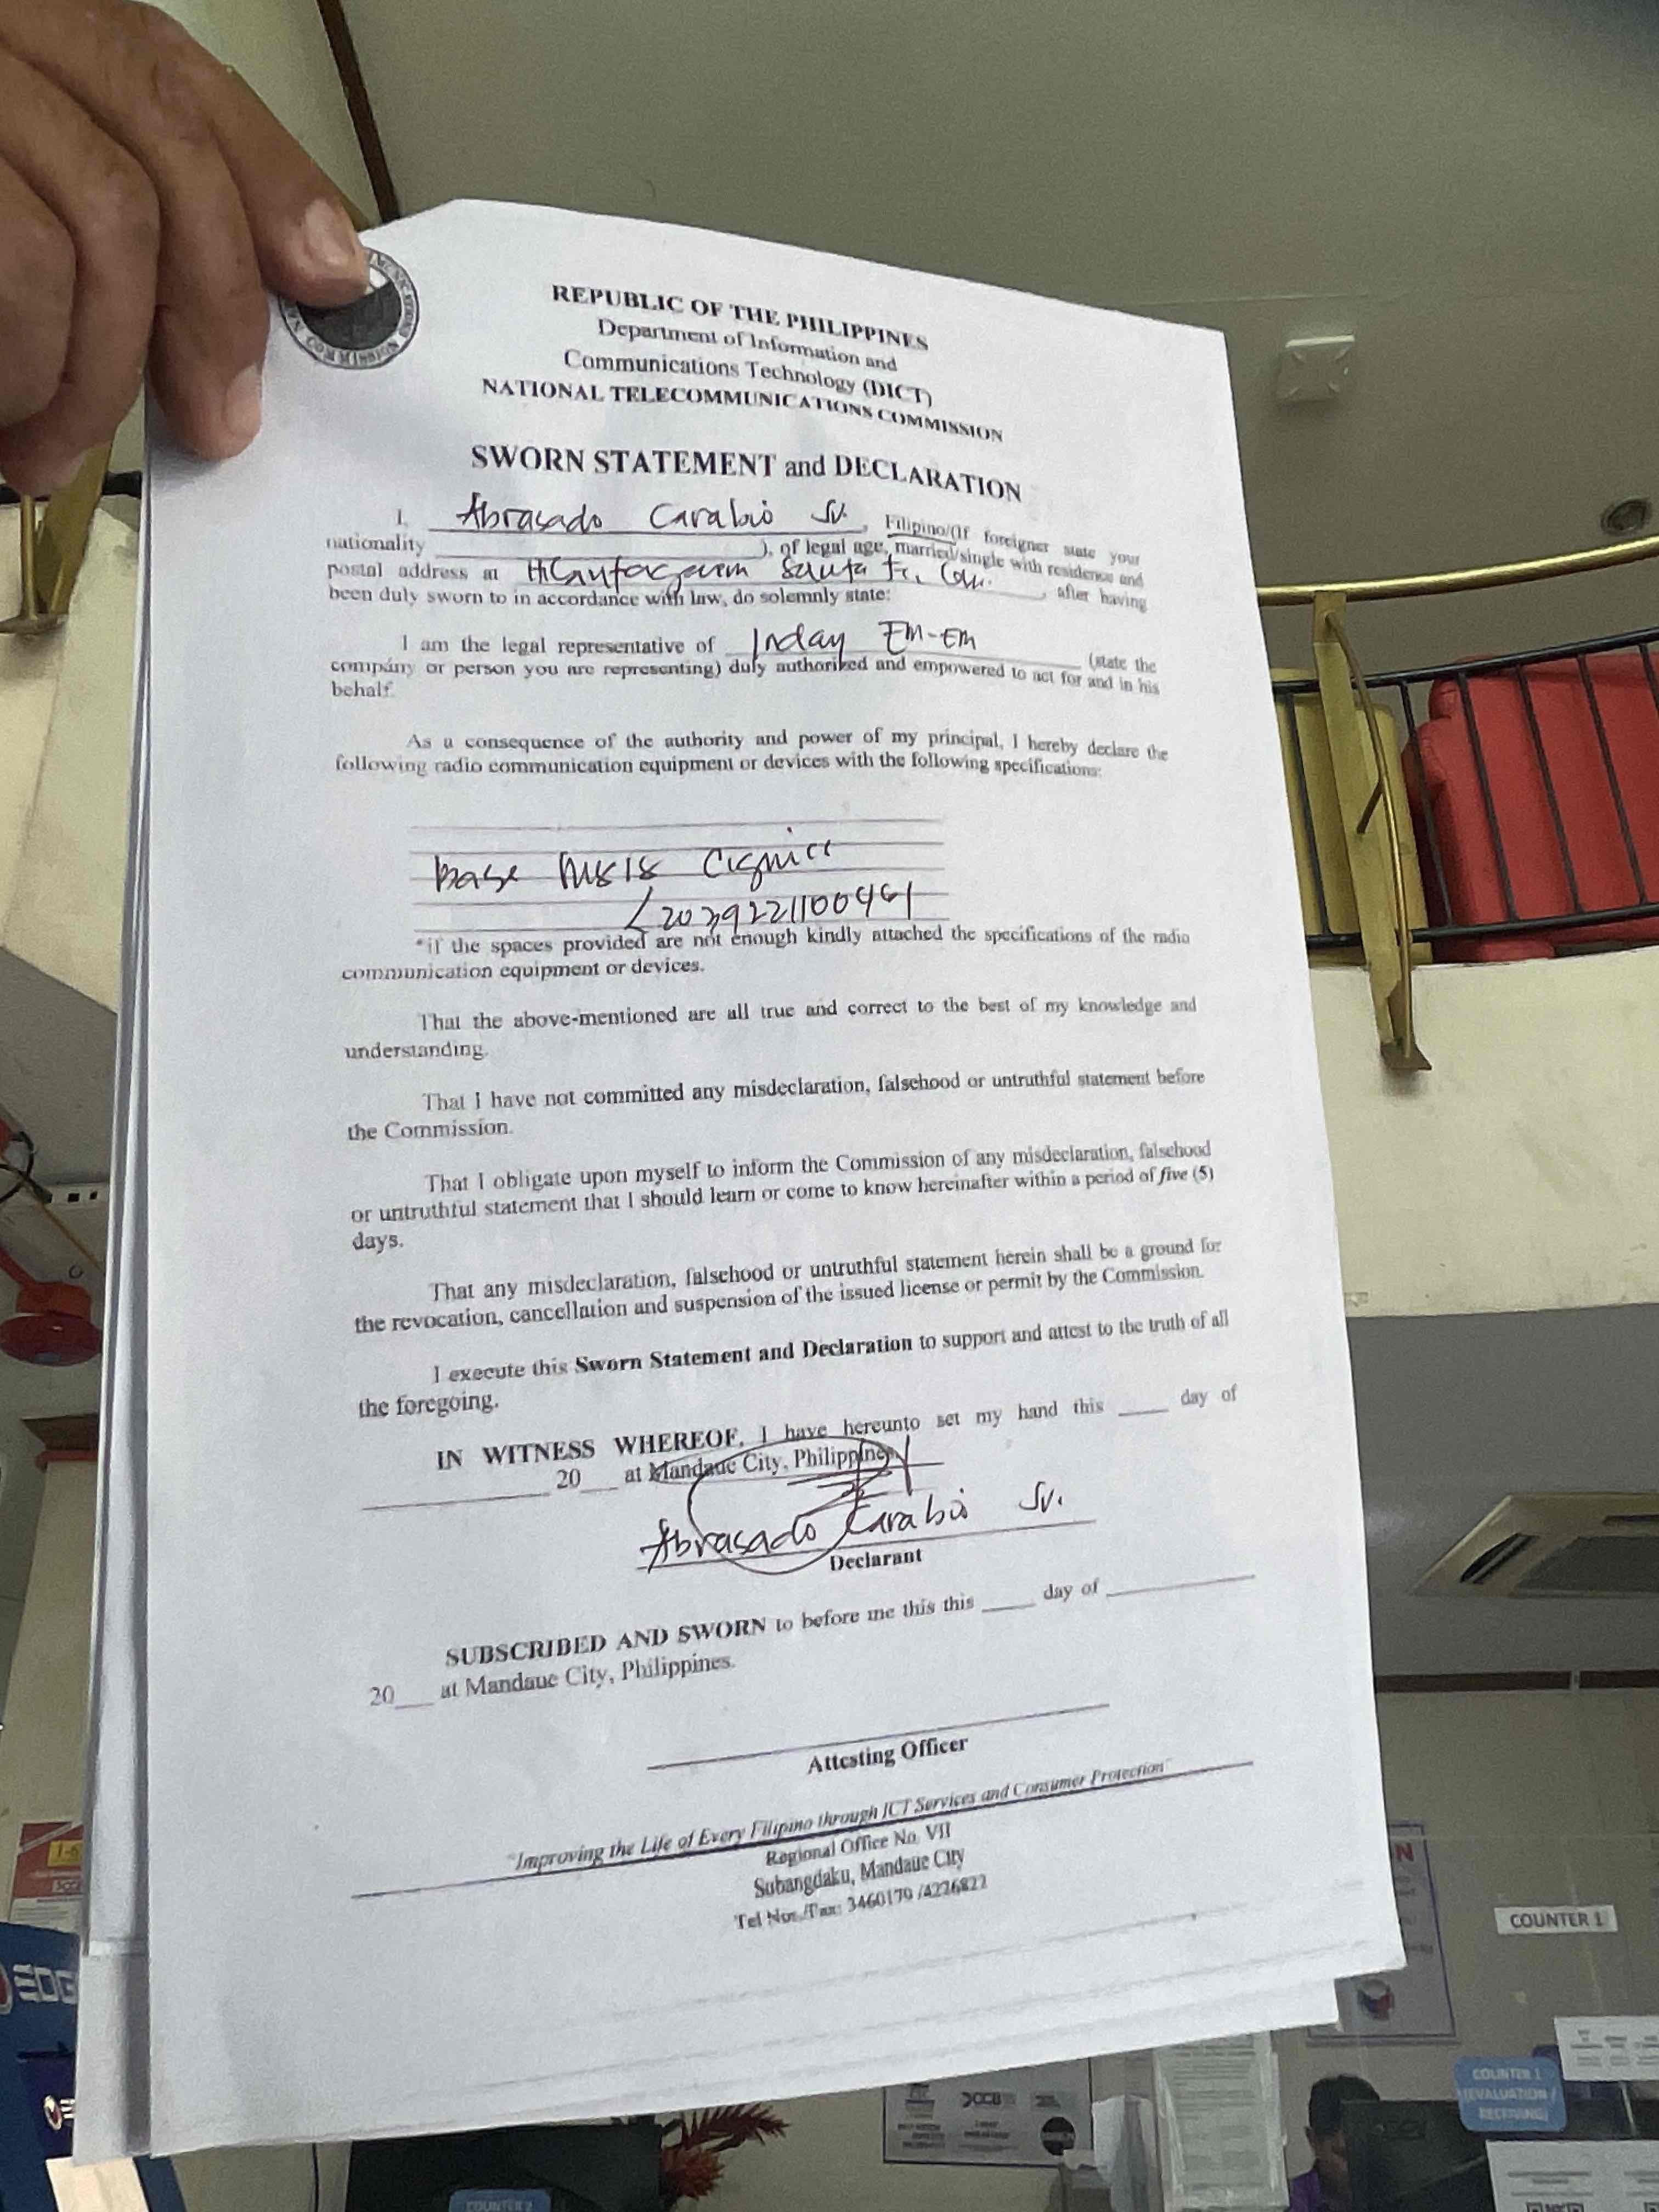 REPUBLIC OF THE PHILIPPINES
Department of Information and
Communications Technology (DICT)
NATIONAL TELECOMMUNICATIONS COMMISSION
SWORN STATEMENT and DECLARATION
I, Abrasado Carabio Sr., Filipino/(If foreigner state your
nationality ____________), of legal age, married/single with residence and
postal address at Santa Fe, , after having
been duly sworn to in accordance with law, do solemnly state:
I am the legal representative of Inday Em-Em (state the
company or person you are representing) duly authorized and empowered to act for and in his
behalf.
As a consequence of the authority and power of my principal, I hereby declare the
following radio communication equipment or devices with the following specifications:
Base Cignus
*if the spaces provided are not enough kindly attached the specifications of the radio
communication equipment or devices.
That the above-mentioned are all true and correct to the best of my knowledge and
understanding.
That I have not committed any misdeclaration, falsehood or untruthful statement before
the Commission.
That I obligate upon myself to inform the Commission of any misdeclaration, falsehood
or untruthful statement that I should learn or come to know hereinafter within a period of five (5)
days.
That any misdeclaration, falsehood or untruthful statement herein shall be a ground for
the revocation, cancellation and suspension of the issued license or permit by the Commission.
I execute this Sworn Statement and Declaration to support and attest to the truth of all
the foregoing.
IN WITNESS WHEREOF, I have hereunto set my hand this ____ day of
____________ 20___ at Mandaue City, Philippines
Abrasado Carabio Sr.
Declarant
SUBSCRIBED AND SWORN to before me this this ____ day of ____________
20___ at Mandaue City, Philippines.
Attesting Officer
"Improving the Life of Every Filipino through ICT Services and Consumer Protection"
Regional Office No. VII
Subangdaku, Mandaue City
Tel Nos./Fax: 3460179 /4226822
COUNTER 1
COUNTER 1
(EVALUATION /
RECEIVING)
COUNTER 2